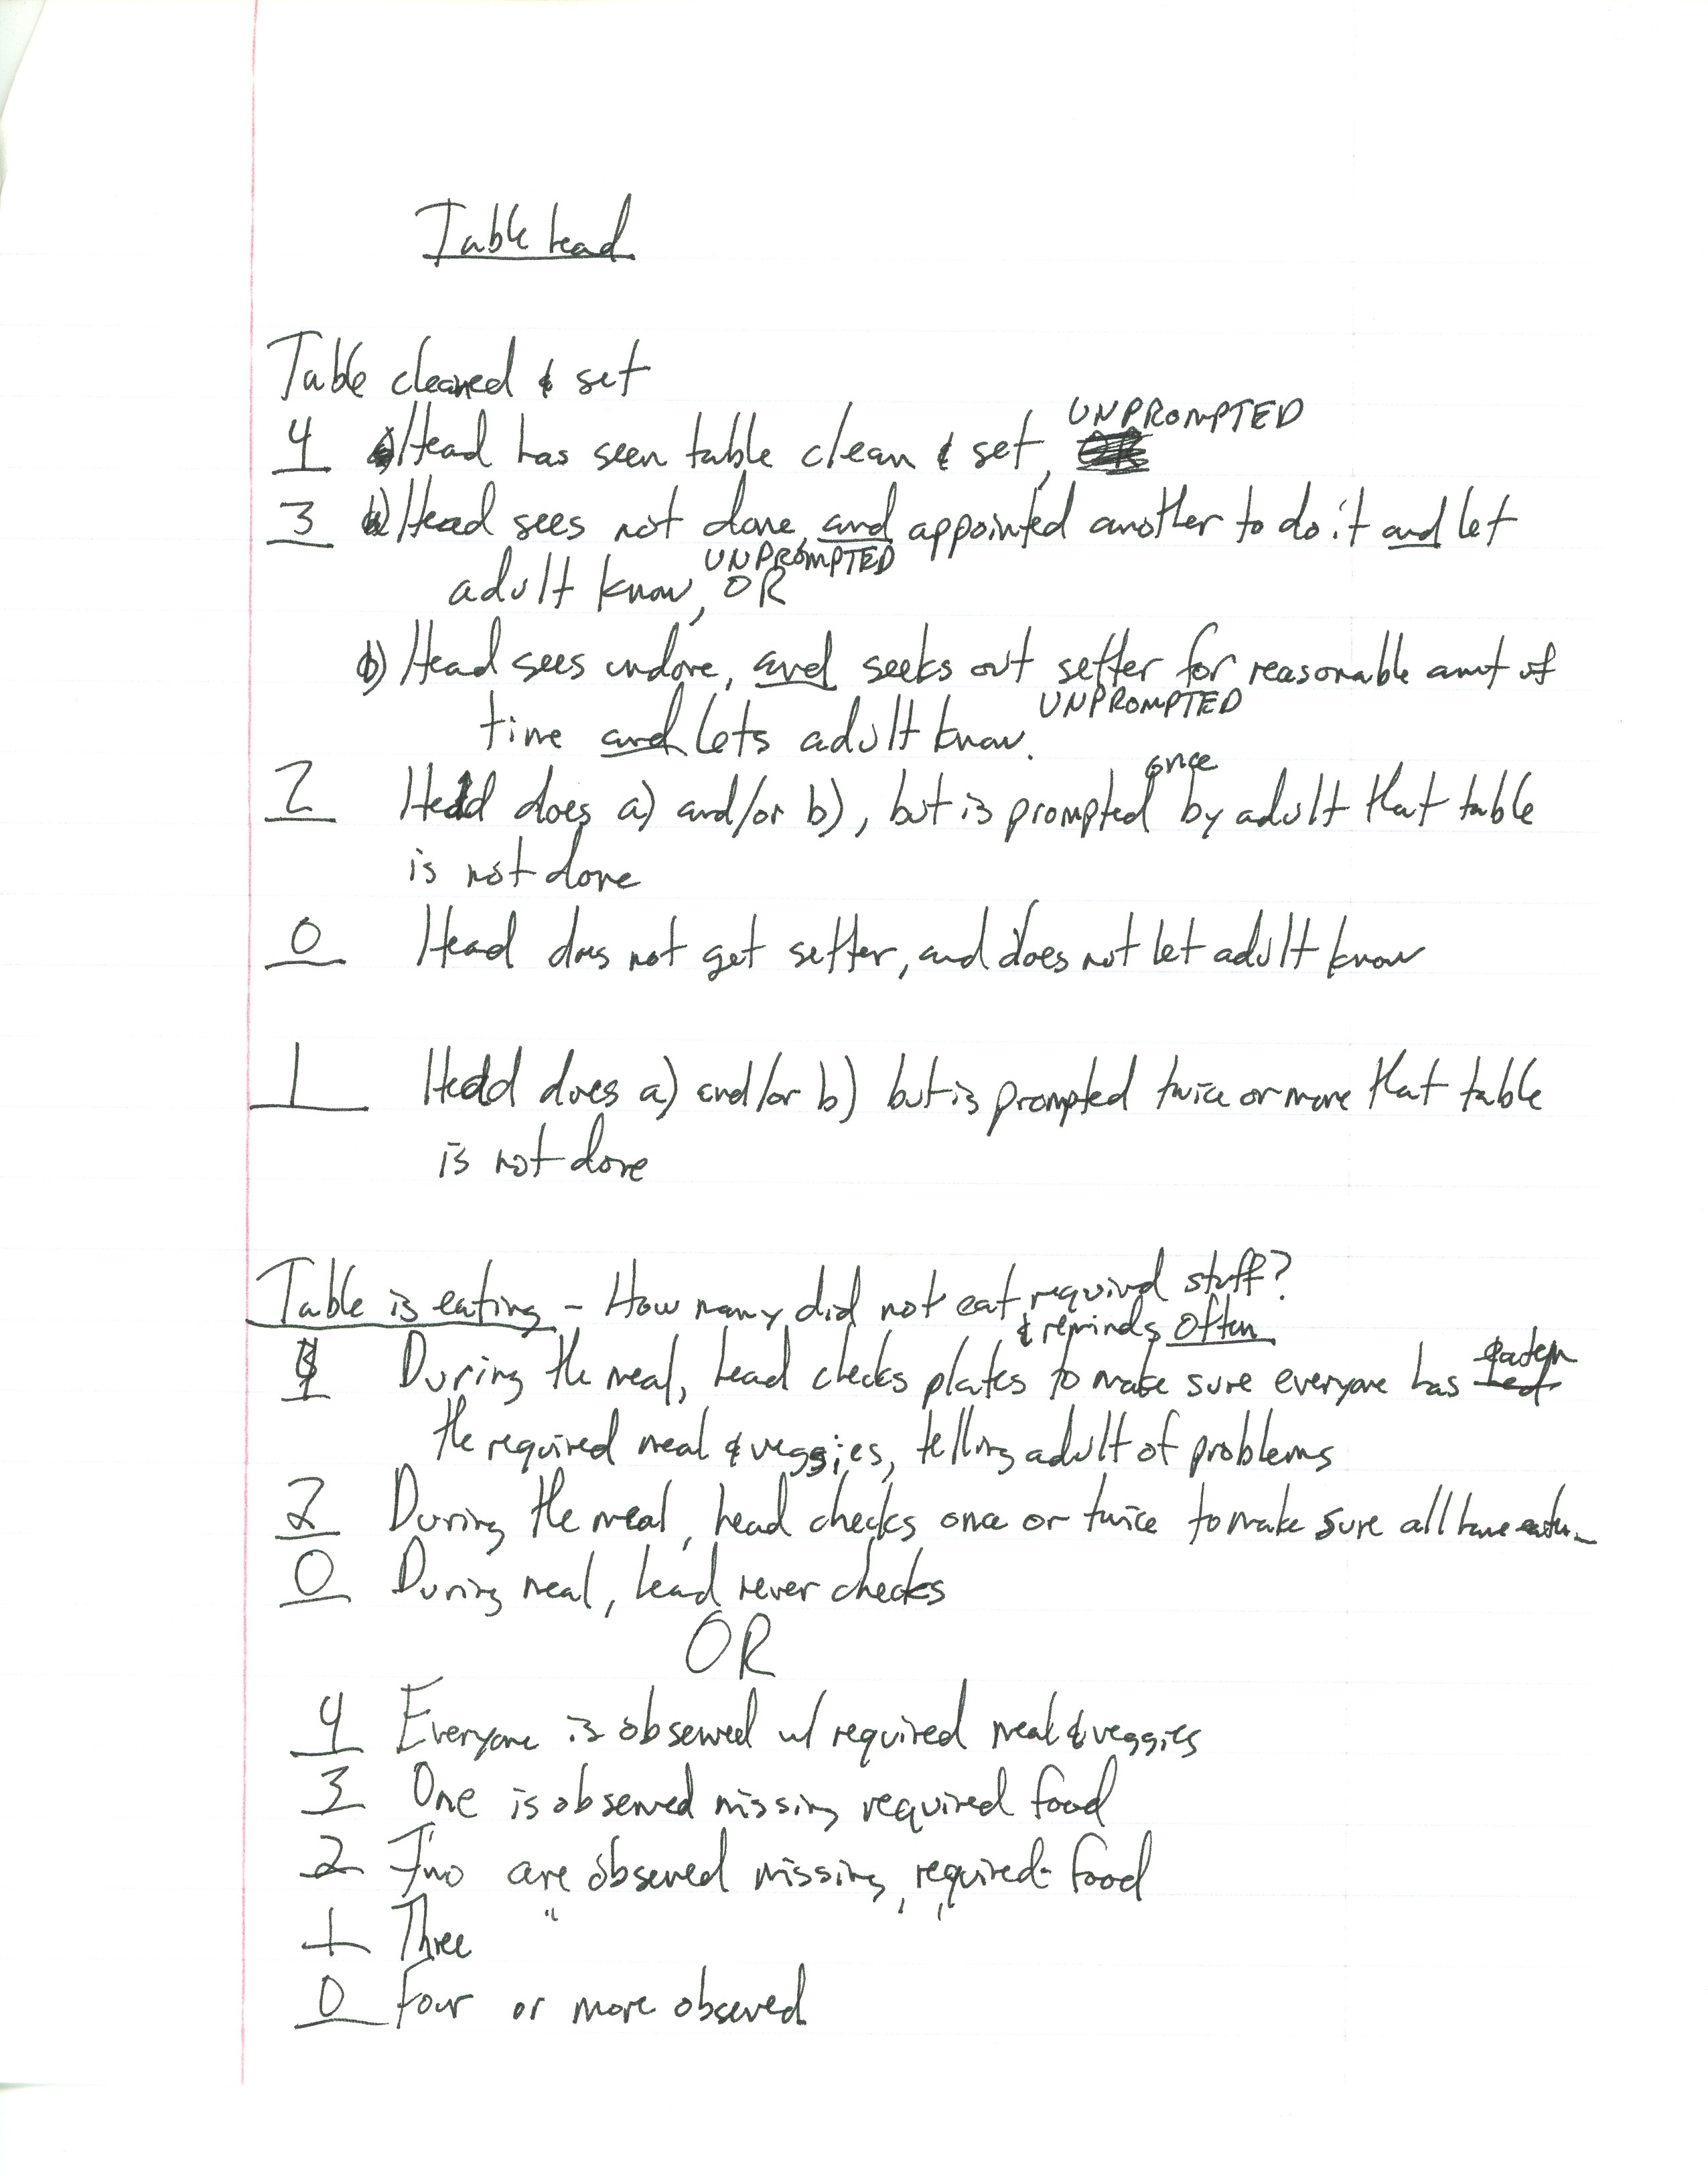 Table head
Table cleaned & set
UNPROMPTED
4 a) Head has seen table clean & set,
3 a) Head sees not done, and appointed another to do it and let
UNPROMPTED
adult know, OR
b) Head sees undone, and seeks out setter for reasonable amt of
UNPROMPTED
time and lets adult know.
once
2 Head does a) and/or b), but is prompted by adult that table
is not done
0 Head does not get setter, and does not let adult know
1 Head does a) and/or b) but is prompted twice or more that table
is not done
Table is eating - How many did not eat required stuff?
& reminds often
4 During the meal, head checks plates to make sure everyone has eaten
the required meal & veggies, telling adult of problems
2 During the meal, head checks once or twice to make sure all have eaten
0 During meal, head never checks
OR
4 Everyone is observed w/ required meal & veggies
3 One is observed missing required food
2 Two are observed missing required food
1 Three " " "
0 Four or more observed